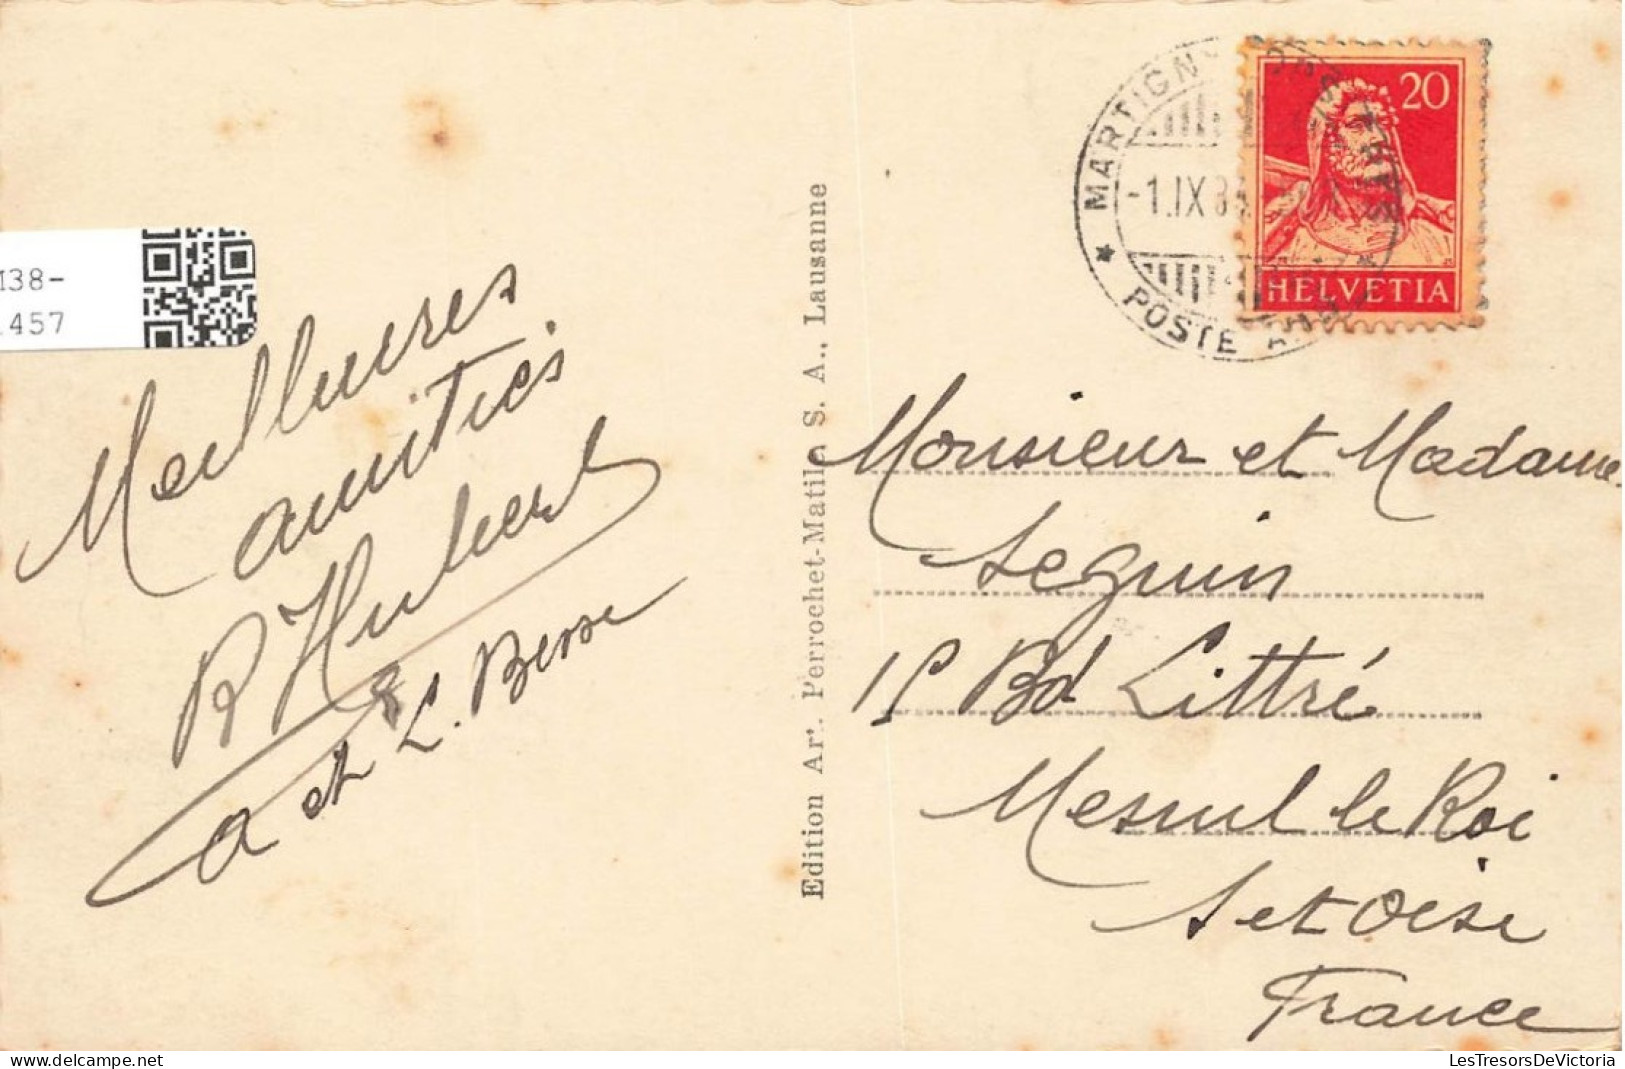 M38-
457
Meilleures
amitiés
R Hubert
a et L. Besse
Edition Art. Perrochet-Matile S. A., Lausanne
MARTIGNY
POSTE
-1.IX
20
HELVETIA
Monsieur et Madame
Seguin
Bd Littré
Mesnil le Roi
S et Oise
France
LesTresorsDeVictoria